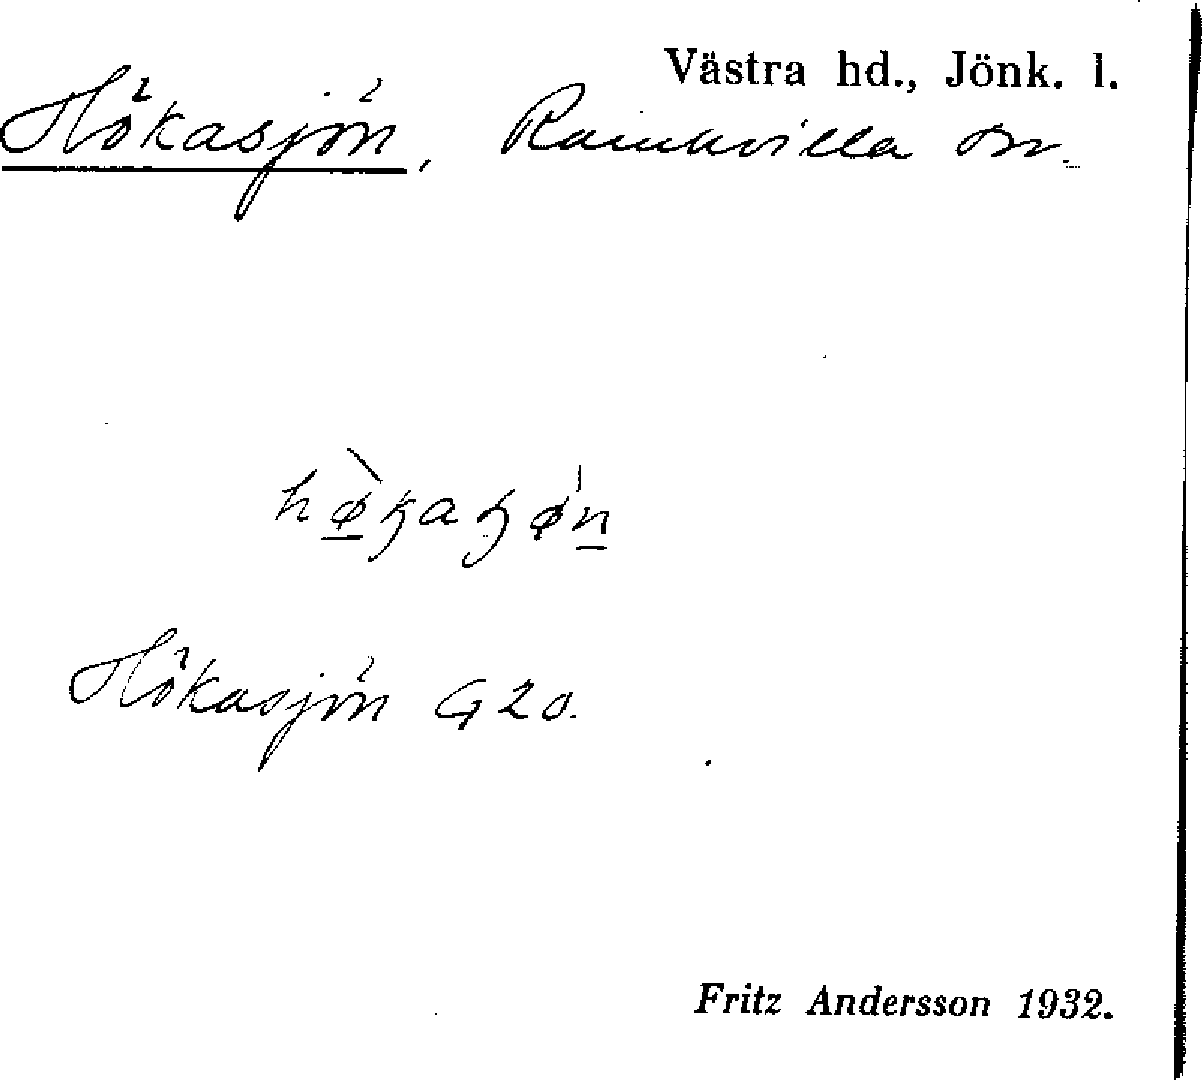 Västra hd., Jönk. l.
Hökasjön, Ramkvilla sn.
Hökasjön G 20.
Fritz Andersson 1932.